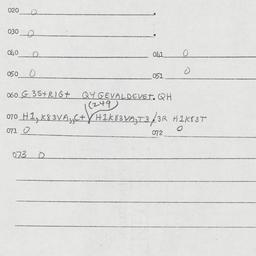 020 0
030 0
040 0 041 0
050 0 051 0
060 G35+R1G+ Q4GEVALDEVET. QH
(249)
070 H1, K83VA,,C+ / H1K83VA,T3 / 3R H1K83T
071 0 072 0
073 0